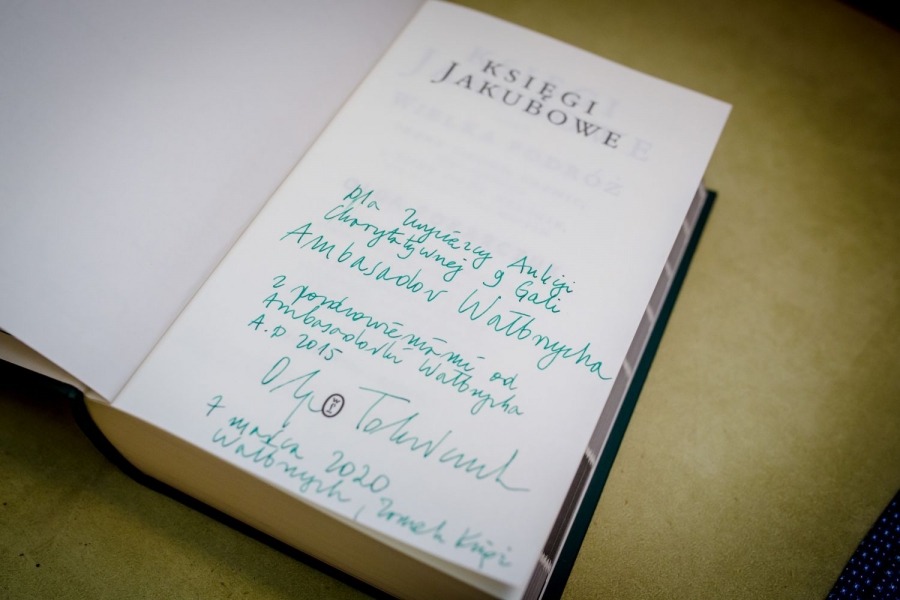 KSIĘGI
JAKUBOWE
Dla Zwycięzcy Aukcji
Charytatywnej 9 Gali
Ambasador Wałbrzycha
z pozdrowieniami od
Ambasadorki Wałbrzycha
A.D 2015
Olga Tokarczuk
7 marca 2020
Wałbrzych, Zamek Książ